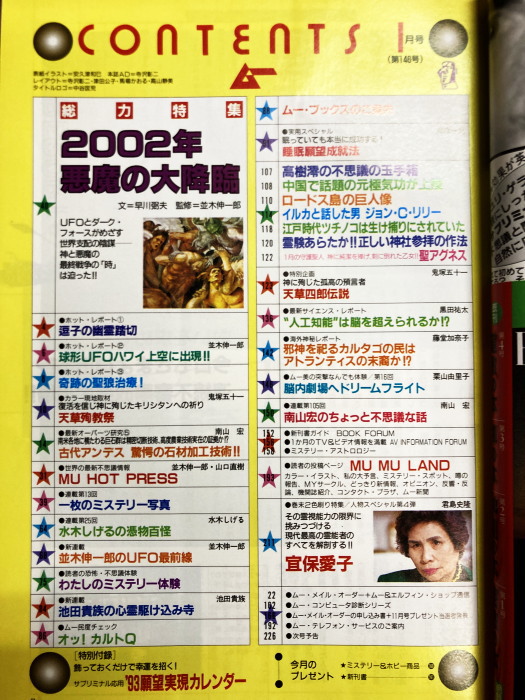 CONTENTS 1月号
(第146号)
表紙イラスト=安久津和巳 本誌AD=寺沢彰二
レイアウト=寺沢彰二・津田公子・馬場かおる・高山静美
タイトルロゴ=中谷匡児
ムー
総力特集
2002年
悪魔の大降臨
文=早川弼夫 監修=並木伸一郎
UFOとダーク・
フォースがめざす
世界支配の陰謀──
神と悪魔の
最終戦争の「時」
は迫った!!
●ホット・レポート①
逗子の幽霊踏切
●ホット・レポート② 並木伸一郎
球形UFOハワイ上空に出現!!
●ホット・レポート③
奇跡の聖狼治療!
●カラー現地取材 鬼塚五十一
復活を信じ神に殉じたキリシタンへの祈り
天草殉教祭
●最新オーパーツ研究⑤ 南山 宏
古代アンデス 驚愕の石材加工技術!!
●世界の最新不思議情報 並木伸一郎・山口直樹
MU HOT PRESS
●連載第13回
一枚のミステリー写真
●連載第25回 水木しげる
水木しげるの憑物百怪
●新連載 並木伸一郎
並木伸一郎のUFO最前線
●読者の恐怖・不思議体験
わたしのミステリー体験
●新連載 池田貴族
池田貴族の心霊駆け込み寺
●ムー民度チェック
オッ!カルトQ
[特別付録]
飾っておくだけで幸運を招く!
サブリミナル応用 '93願望実現カレンダー
ムー・ブックスの
●実用スペシャル
眠っていても本当に成功する!
睡眠願望成就法
107 高樹澪の不思議の玉手箱
108 中国で話題の元極気功が上陸
110 ロードス島の巨人像
イルカと話した男 ジョン・C・リリー
118 江戸時代ツチノコは生け捕りにされていた
120 霊験あらたか!!正しい神社参拝の作法
122 1月の守護聖人 神に純潔を捧げ、剣に倒れた乙女!!聖アグネス
●特別企画 鬼塚五十一
神に殉じた孤高の預言者
天草四郎伝説
●最新サイエンス・レポート 黒田祐太
“人工知能”は脳を超えられるか!?
●海外神秘レポート 藤堂加奈子
邪神を祀るカルタゴの民は
アトランティスの末裔か!?
●ムー美の突撃なんでも体験/第16回 栗山由里子
脳内劇場へドリームフライト
●連載第105回 南山 宏
南山宏のちょっと不思議な話
152 ●新刊書ガイド BOOK FORUM
●1か月のTV&ビデオ情報を満載 AV INFORMATION FORUM
158 ●ミステリー・アストロロジー
●読者の投稿ページ MU MU LAND
カラー・イラスト、私の大予言、ミステリー・スポット、噂の
報告、MYサークル、どっきり新情報、オピニオン、反響・反
論、機関誌紹介、コンタクト・プラザ、ムー新聞
●巻末2色刷り特集/人物スペシャル第4弾 君島史隆
その霊視能力の限界に
挑みつづける
現代最高の霊能者の
すべてを解剖する!!
宜保愛子
22 ●ムー・メイル・オーダー+ムー&エルフィン・ショップ通信
102 ●ムー・コンピュータ診断シリーズ
●ムー・メイル・オーダーの申し込み書+11月号プレゼント当選者発表
192 ●ムー・テレフォン・サービスのご案内
226 ●次号予告
今月の
プレゼント
★ミステリー&ホビー商品
★新刊書